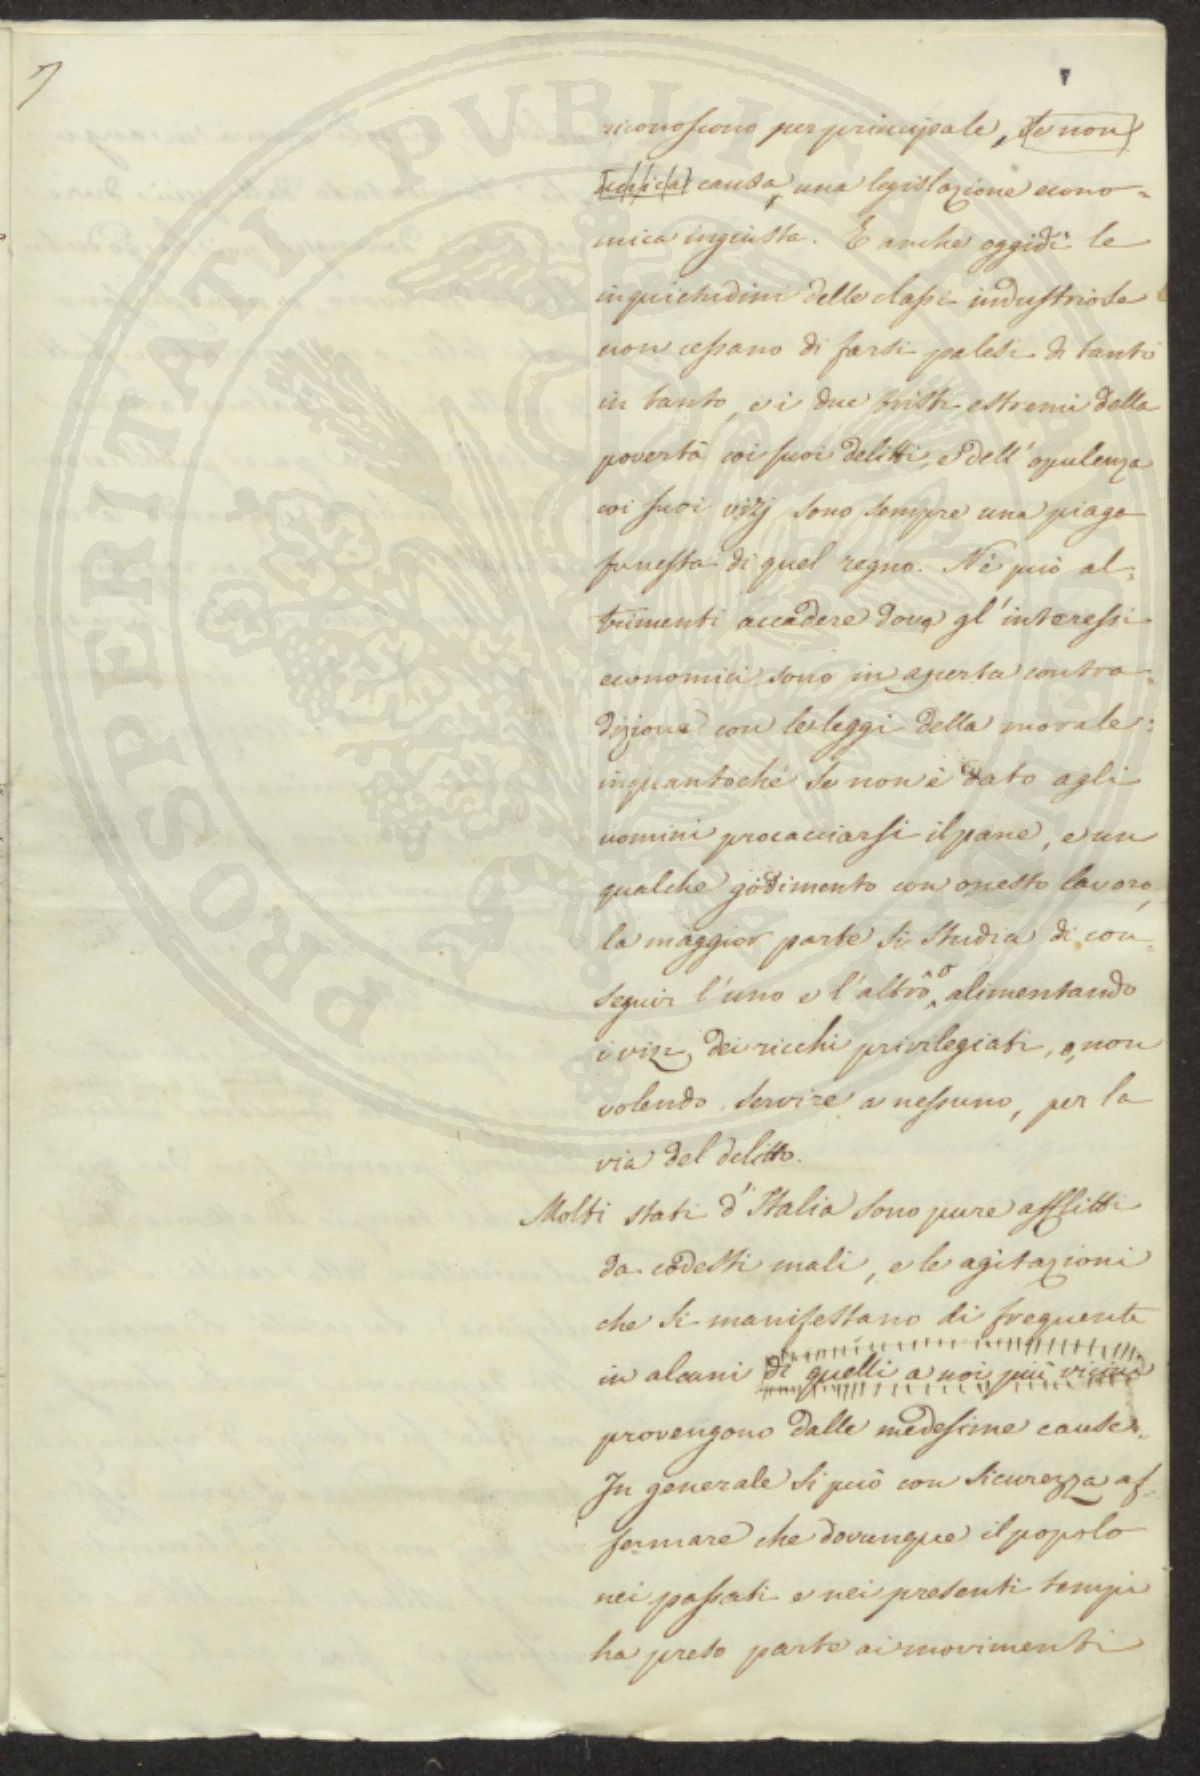 7
riconoscono per principale, se non
unica causa, una legislazione econo=
mica ingiusta. E anche oggidì le
inquietudini delle classi industriose
non cessano di farsi palesi di tanto
in tanto, e i due tristi estremi della
povertà coi suoi delitti, e dell'opulenza
coi suoi vizj sono sempre una piaga
funesta di quel regno. Nè può al=
trimenti accadere dove gl'interessi
economici sono in aperta contra=
dizione con le leggi della morale:
inquantochè se non è dato agli
uomini procacciarsi il pane, e un
qualche godimento con onesto lavoro,
la maggior parte si studia di con=
seguir l'uno e l'altro o alimentando
i vizi dei ricchi privilegiati, o, non
volendo servire a nessuno, per la
via del delitto.
Molti stati d'Italia sono pure afflitti
da codesti mali, e le agitazioni
che si manifestano di frequente
in alcuni di quelli a noi più vicini
provengono dalle medesime cause.
In generale si può con sicurezza af=
fermare che dovunque il popolo
nei passati e nei presenti tempi
ha preso parte ai movimenti
PROSPERITATI PUBLICAE